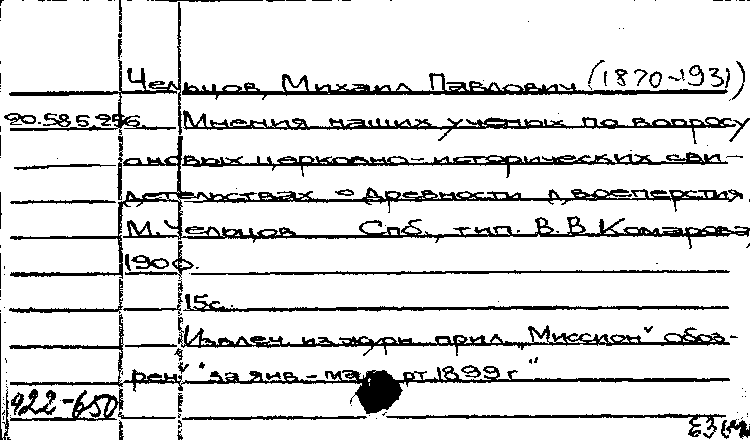 Чельцов, Михаил Павлович (1870-1931)
20.585.256. Мнения наших ученых по вопросу
о новых церковно-исторических сви-
детельствах о древности двоеперстия
М. Чельцов Спб., тип. В. В. Комарова,
1900.
15с.
Извлеч. из журн. прил. „Миссион" обоз-
рен" "за янв.-март 1899г"
422-650